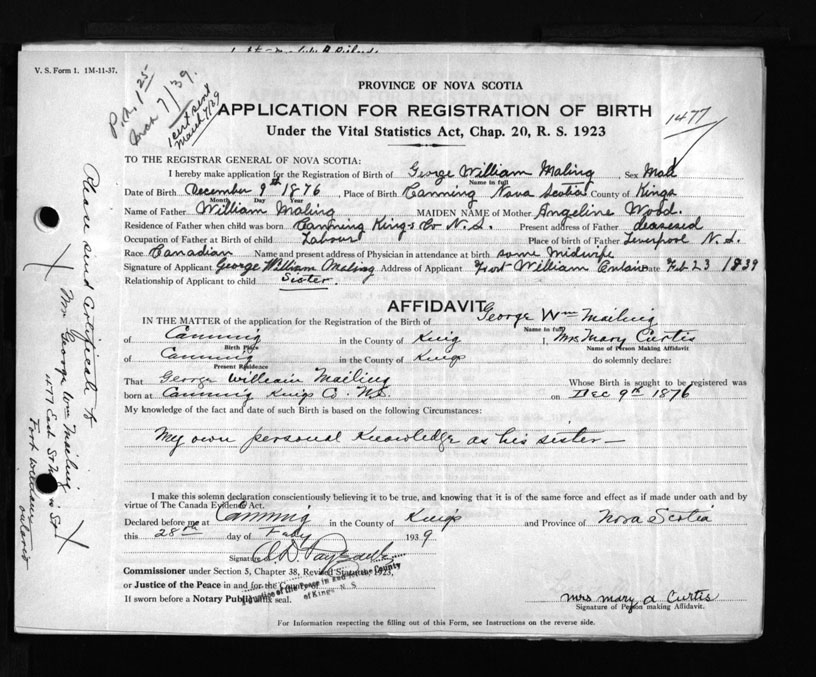 V. S. Form 1. 1M-11-37.
P.N. 1.25
Mch 7/39.
1 cert sent
March 7/39
1477
PROVINCE OF NOVA SCOTIA
APPLICATION FOR REGISTRATION OF BIRTH
Under the Vital Statistics Act, Chap. 20, R. S. 1923
TO THE REGISTRAR GENERAL OF NOVA SCOTIA:
I hereby make application for the Registration of Birth of George William Maling, Sex Male
Name in full
Date of Birth December 9th 1876, Place of Birth Canning Nova Scotia County of Kings
Month Day Year
Name of Father William Maling MAIDEN NAME of Mother Angeline Wood.
Residence of Father when child was born Canning Kings Co N.S. Present address of Father deceased
Occupation of Father at Birth of child Labour Place of birth of Father Liverpool N.S.
Race Canadian Name and present address of Physician in attendance at birth some Midwife
Signature of Applicant George William Maling Address of Applicant Fort William Ontario Date Feb 23 1939
Relationship of Applicant to child Sister.
AFFIDAVIT
IN THE MATTER of the application for the Registration of the Birth of George Wm Mailing
Name in full
of Canning in the County of King I, Mrs Mary Curtis
Birth Place Name of Person Making Affidavit
of Canning in the County of Kings do solemnly declare:
Present Residence
That George William Mailing Whose Birth is sought to be registered was
born at Canning Kings Co. N.S. on Dec 9th 1876
My knowledge of the fact and date of such Birth is based on the following Circumstances:
My own personal Knowledge as his sister—
I make this solemn declaration conscientiously believing it to be true, and knowing that it is of the same force and effect as if made under oath and by
virtue of The Canada Evidence Act.
Declared before me at Canning in the County of Kings and Province of Nova Scotia
this 28th day of Feby 1939
Signature
Commissioner under Section 5, Chapter 38, Revised Statutes 1923,
or Justice of the Peace in and for the County of
Justice of the Peace in and for the County
of Kings N. S.
If sworn before a Notary Public affix seal.
Mrs Mary A Curtis
Signature of Person making Affidavit.
For Information respecting the filling out of this Form, see Instructions on the reverse side.
Please send certificate to
Mr George Wm Mailing
1477 East St
Fort William
Ontario